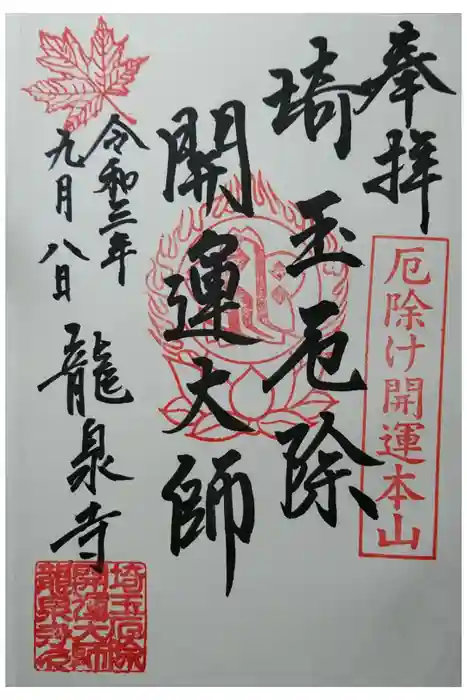 奉拝
厄除け開運本山
埼玉厄除
開運大師
令和三年
九月八日
龍泉寺
埼玉厄除
開運大師